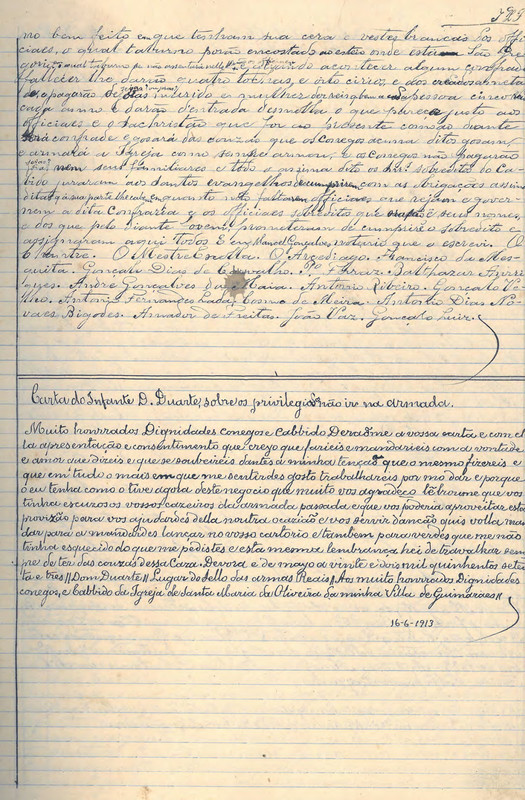 no bem feito en que tenham sua cera e vestes brancas Los offi
ciaes, o qual
goricio
fallecer lhe darão quatro tochas, e oito cirios, e dos creados
as inteirido e a mulher
cada anno e darão d'entrada desmolha o que justo aos
officiaes e o sachristão que for ao presente comdão diante
será confrade e gosará das que os conegos acuma ditos gosam,
e armará a Igreja como sempre armou, e os conegos não pagarão
nem seus familiares e todo o assima dito os sobredito do Ca-
bido juraram aos santos evangelhos de cumprirem com as obrigações assim
ditas q á sua parte lhe cabe, enquanto não officiaes que rejam e gover-
nem a dita Confraria e os officiaes sobredito que é seus nomes,
e dos que pelo diante forem prometeram de cumprir o sobredito e
assignaram aqui todos E eu Manoel Gonçalves, notario que a escrevi. O
Chantre. O Mestre Escolla. O Arcediago. Francisco da Mes-
quita. Gonçalo Dias de Carvalho. Po. Ferraz. Balthazar
Andre Gonçalves da Maia. Antonio Ribeiro. Gonçalo Ve-
lho. Antonio Fernandes Cosmo de Meira. Antonio Dias No-
vaes Bigodes. Amador de Freitas. João Vaz. Gonçalo Luiz.
Carta do Infante D. Duarte, sobre os privilegiados não ir na armada.
Muito honrrados Dignidades conegos e cabbido Derasme a vossa carta e com el
la apresentação e consentimento que creyo que farieis e mandarieis com a vontade
e amor que direis e que se soubeireis dantes a minha tenção que o mesmo fizereis e
que em tudo o mais em que me sentirdes gosto trabalhareis por mo dar e porque
o eu tenha como o tive agora deste negocio que muito vos agradeço
tinha escurosos vossos cazeiros da armada passada e que vos poderia aproveitar esta
provizão para vos ajudardes della noutra ocazião e vos servir dancão quis volla man
dar para a mandardes lançar no vosso cartorio e tambem para verdes que me não
tinha esquecido do que me pedistes e esta mesma lembrança hei de travalhar sem
pre de ter das couzas dessa Caza. Devora e de mayo a vinte e dois mil quinhentos seten
ta e tres // Dom Duarte // Lugar do sello das armas Reais // Aos muito honrrados Dignidades
conegos, e Cabbido da Igreja de Santa Maria da Oliveira da minha Villa de Guimaraes //
16-6-1913